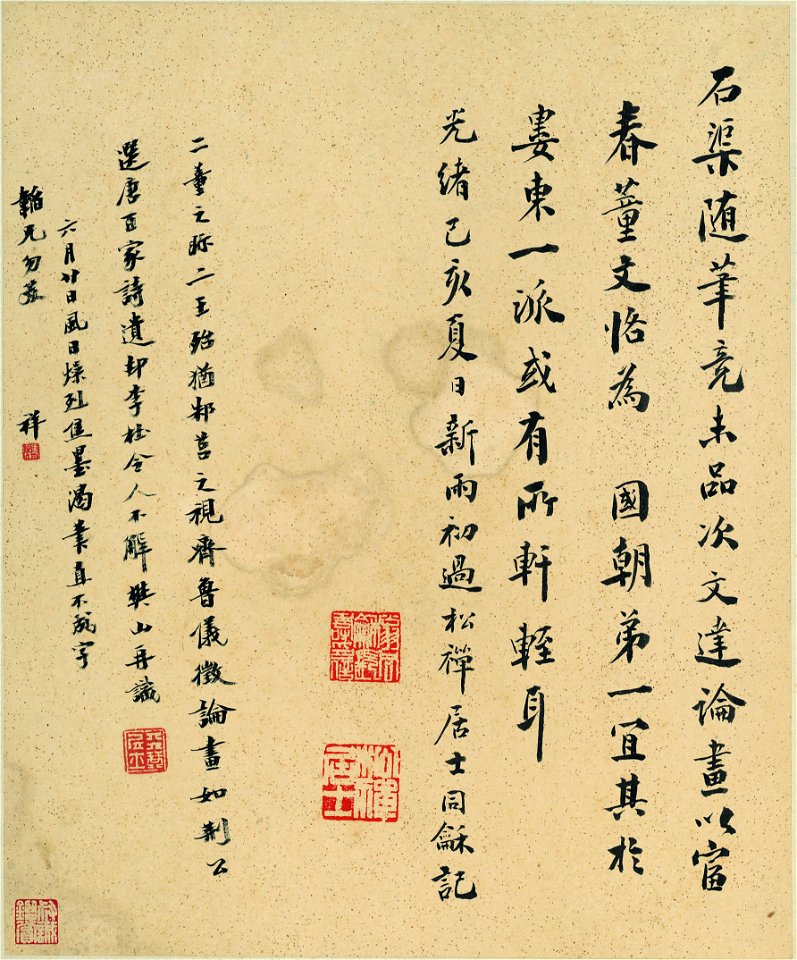 石渠随筆竟未品次文達論畫以富
春董文恪為 國朝弟一宜其於
婁東一派或有所軒輊耳
光緒己亥夏日新雨初過松禪居士同龢記
二董之眎二王殆猶邾莒之視齊魯儀徵論畫如荆公
選唐百家詩遺却李杜令人不解樊山再識
六月廿日風日燥烈焦墨渴筆真不成字
韜兄勿䒵
祥
松禪居士